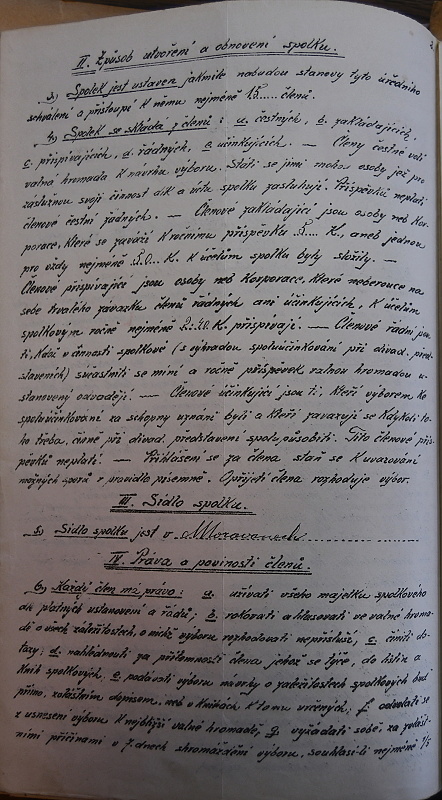 II. Způsob utvoření a obnovení spolku.
3.) Spolek jest ustaven jakmile nabudou stanovy tyto úředního
schválení a přistoupí k němu nejméně 15..... členů.
4.) Spolek se skládá z členů: a, čestných, b. zakládajících,
c. přispívajících, d. řádných, e. účinkujících. — Členy čestné volí
valná hromada k návrhu výboru. Státi se jimi mohou osoby jež pro
záslužnou svoji činnost dík a úctu spolku zasluhují. Příspěvků neplatí
členové čestní žádných. — Členové zakládající jsou osoby neb kor-
porace, které se zaváží k ročnímu příspěvku 5... K., aneb jednou
pro vždy nejméně 50... K. k účelům spolku byly složily. —
Členové přispívající jsou osoby neb korporace, které neberouce na
sebe trvalého závazku členů řádných ani účinkujících, k účelům
spolkovým ročně nejméně 2.20 K. přispívají. — Členové řádní jsou
ti, kdož v činnosti spolkové (s výhradou spoluúčinkování při divad. před-
staveních) súčastniti se míní a ročně příspěvek valnou hromadou u-
stanovený odvádějí. — Členové účinkující jsou ti, kteří výborem ke
spoluúčinkování za schopny uznáni byli a kteří zavazují se kdykoli to-
ho třeba, činně při divad. představení spolupůsobiti. Tito členové přís-
pěvků neplatí. — Přihlášení se za člena staň se k uvarování
možných sporů z pravidla písemně. O přijetí člena rozhoduje výbor.
III. Sídlo spolku.
5.) Sídlo spolku jest v
IV. Práva a povinosti členů.
6.) Každý člen má právo: a. užívati všeho majetku spolkového
dle platných ustanovení a řádů; b. rokovati a hlasovati ve valné hroma-
dě o všech záležitostech, o nichž výboru rozhodovati nepřísluší, c. činiti do-
tazy; d. nahlédnouti za přítomnosti člena jehož se týče, do listin a
knih spolkových, e. podávati výboru návrhy o záležitostech spolkových buď
přímo, zvláštním dopisem, neb v knihách k tomu určených, f. odvolati se
z usnesení výboru k nejbližší valné hromadě, g. vyžádati sobě za zvlášt-
ními příčinami v 7. dnech shromáždění výboru, souhlasí-li nejméně 1/5